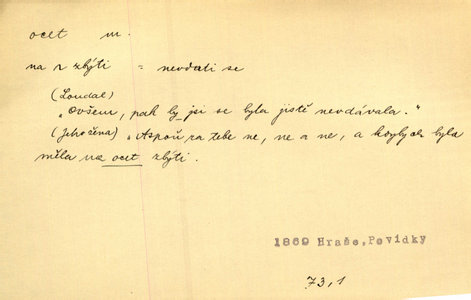 ocet m.
na o zbýti = nevdati se
(Loudal)
"Ovšem, pak by jsi se byla jistě nevdávala."
"Aspoň za tebe ne, ne a ne, a kdybych byla
měla na ocet zbýti.
1869 Hraše, Povídky
73,1